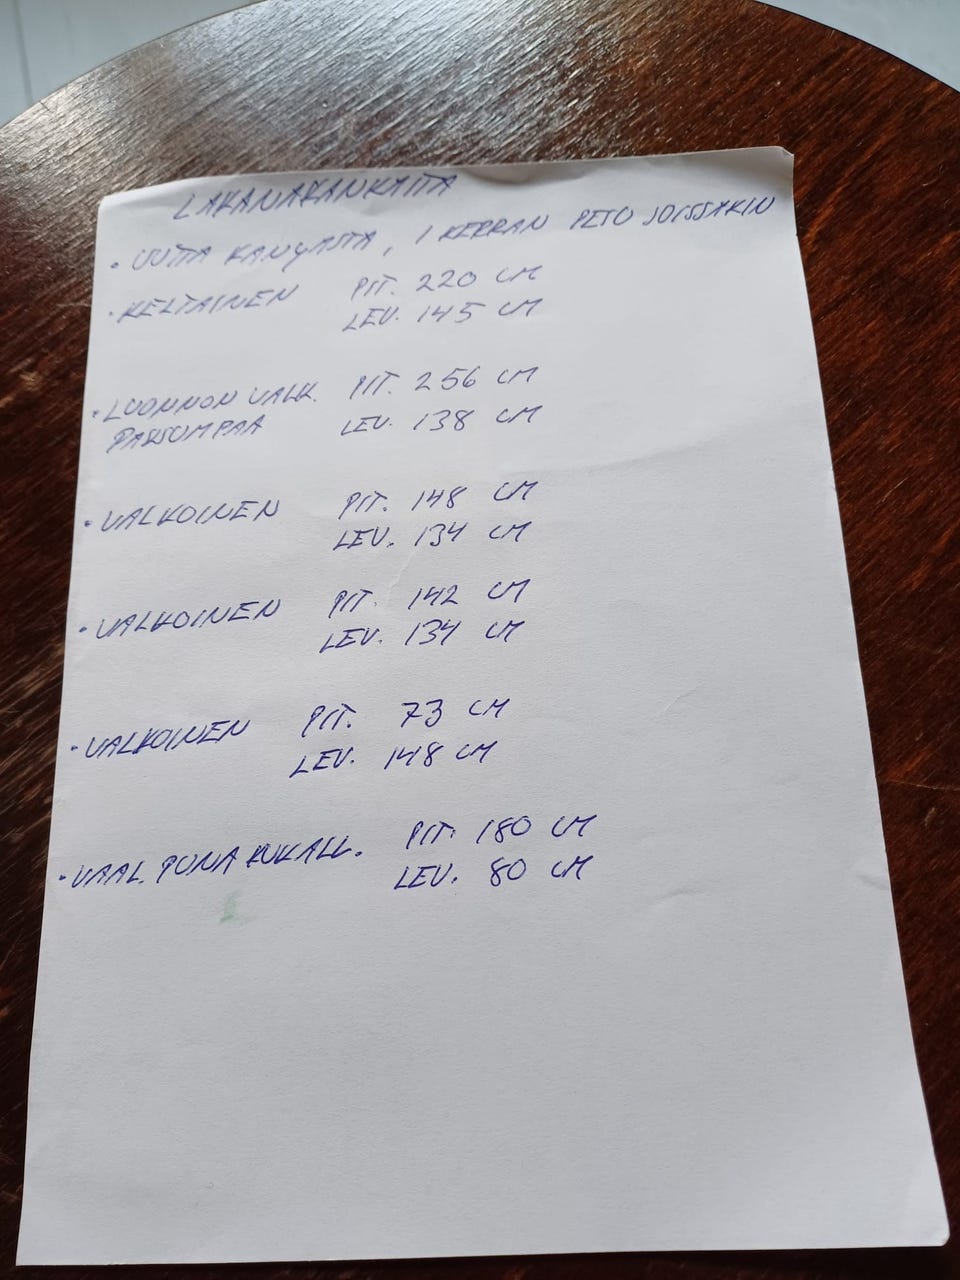 LAKANAKANKAITA
• UUTTA KANGASTA, 1 KERRAN PESU JOISSAKIN
• KELTAINEN PIT. 220 CM
LEV. 145 CM
• LUONNON VALK. PIT. 256 CM
PAKSUMPAA LEV. 138 CM
• VALKOINEN PIT. 148 CM
LEV. 134 CM
• VALKOINEN PIT. 142 CM
LEV. 134 CM
• VALKOINEN PIT. 73 CM
LEV. 148 CM
• VAAL. PUNA KUKALL. PIT. 180 CM
LEV. 80 CM